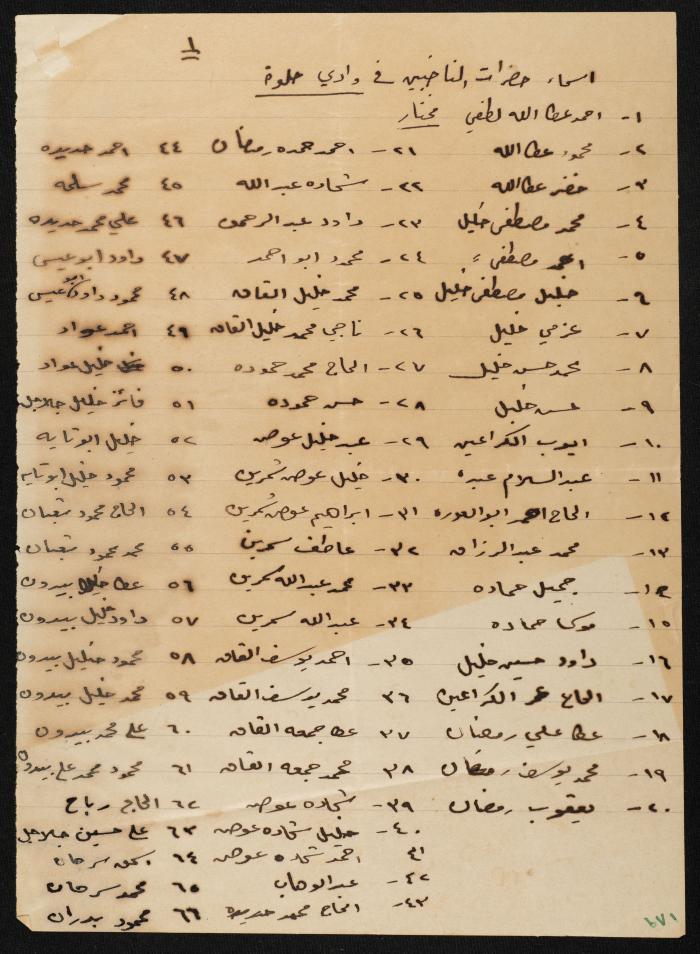 ١
اسماء حضرات الناخبين في وادي حلوة
١- احمد عطا الله لطفي مختار
٢- محمود عطا الله
٣- خضر عطا الله
٤- محمد مصطفى خليل
٥- احمد مصطفى "
٦- خليل مصطفى خليل
٧- عزمي خليل
٨- محمد حسن خليل
٩- حسن خليل
١٠- ايوب الكراعين
١١- عبد السلام عبده
١٢- الحاج احمد ابو العوره
١٣- محمد عبد الرزاق
١٤- جميل حماده
١٥- موسى حماده
١٦- داود حسين خليل
١٧- الحاج عمر الكراعين
١٨- عطا علي رمضان
١٩- محمد يوسف رمضان
٢٠- يعقوب رمضان
٢١- احمد حمده رمضان
٢٢- شحاده عبد الله
٢٣- داود عبد الرحمن
٢٤- محمود ابو احمد
٢٥- محمد خليل القاق
٢٦- ناجي محمد خليل القاق
٢٧- الحاج محمد حموده
٢٨- حسن حموده
٢٩- عبد خليل عوض
٣٠- خليل عوض شمرين
٣١- ابراهيم عوض سمرين
٣٢- عاطف سمرين
٣٣- محمد عبد الله سمرين
٣٤- عبد الله سمرين
٣٥- احمد يوسف القاق
٣٦ محمد يوسف القاق
٣٧ عطا جمعه القاق
٣٨ محمد جمعه القاق
٣٩- شحاده عوض
٤٠- خليل شحاده عوض
٤١ احمد شحاده عوض
٤٢- عبد الوهاب
٤٣- الحاج محمد حديده
٤٤ احمد حديده
٤٥ محمد سلمه
٤٦ علي محمد حديده
٤٧ داود ابو عيسى
٤٨ محمود داود ابو عيسى
٤٩ احمد عواد
٥٠ خليل عواد
٥١ فائز خليل جلاجل
٥٢ خليل ابو تايه
٥٣ محمود خليل ابو تايه
٥٤ الحاج محمود شعبان
٥٥ محمد محمود شعبان
٥٦ عطا خليل بيدون
٥٧ داود خليل بيدون
٥٨ محمود خليل بيدون
٥٩ محمد خليل بيدون
٦٠ علي محمد بيدون
٦١ محمود محمد علي بيدون
٦٢ الحاج رباح
٦٣ علي حسين جلاجل
٦٤ اسحق سرحان
٦٥ محمد سرحان
٦٦ محمود بدران